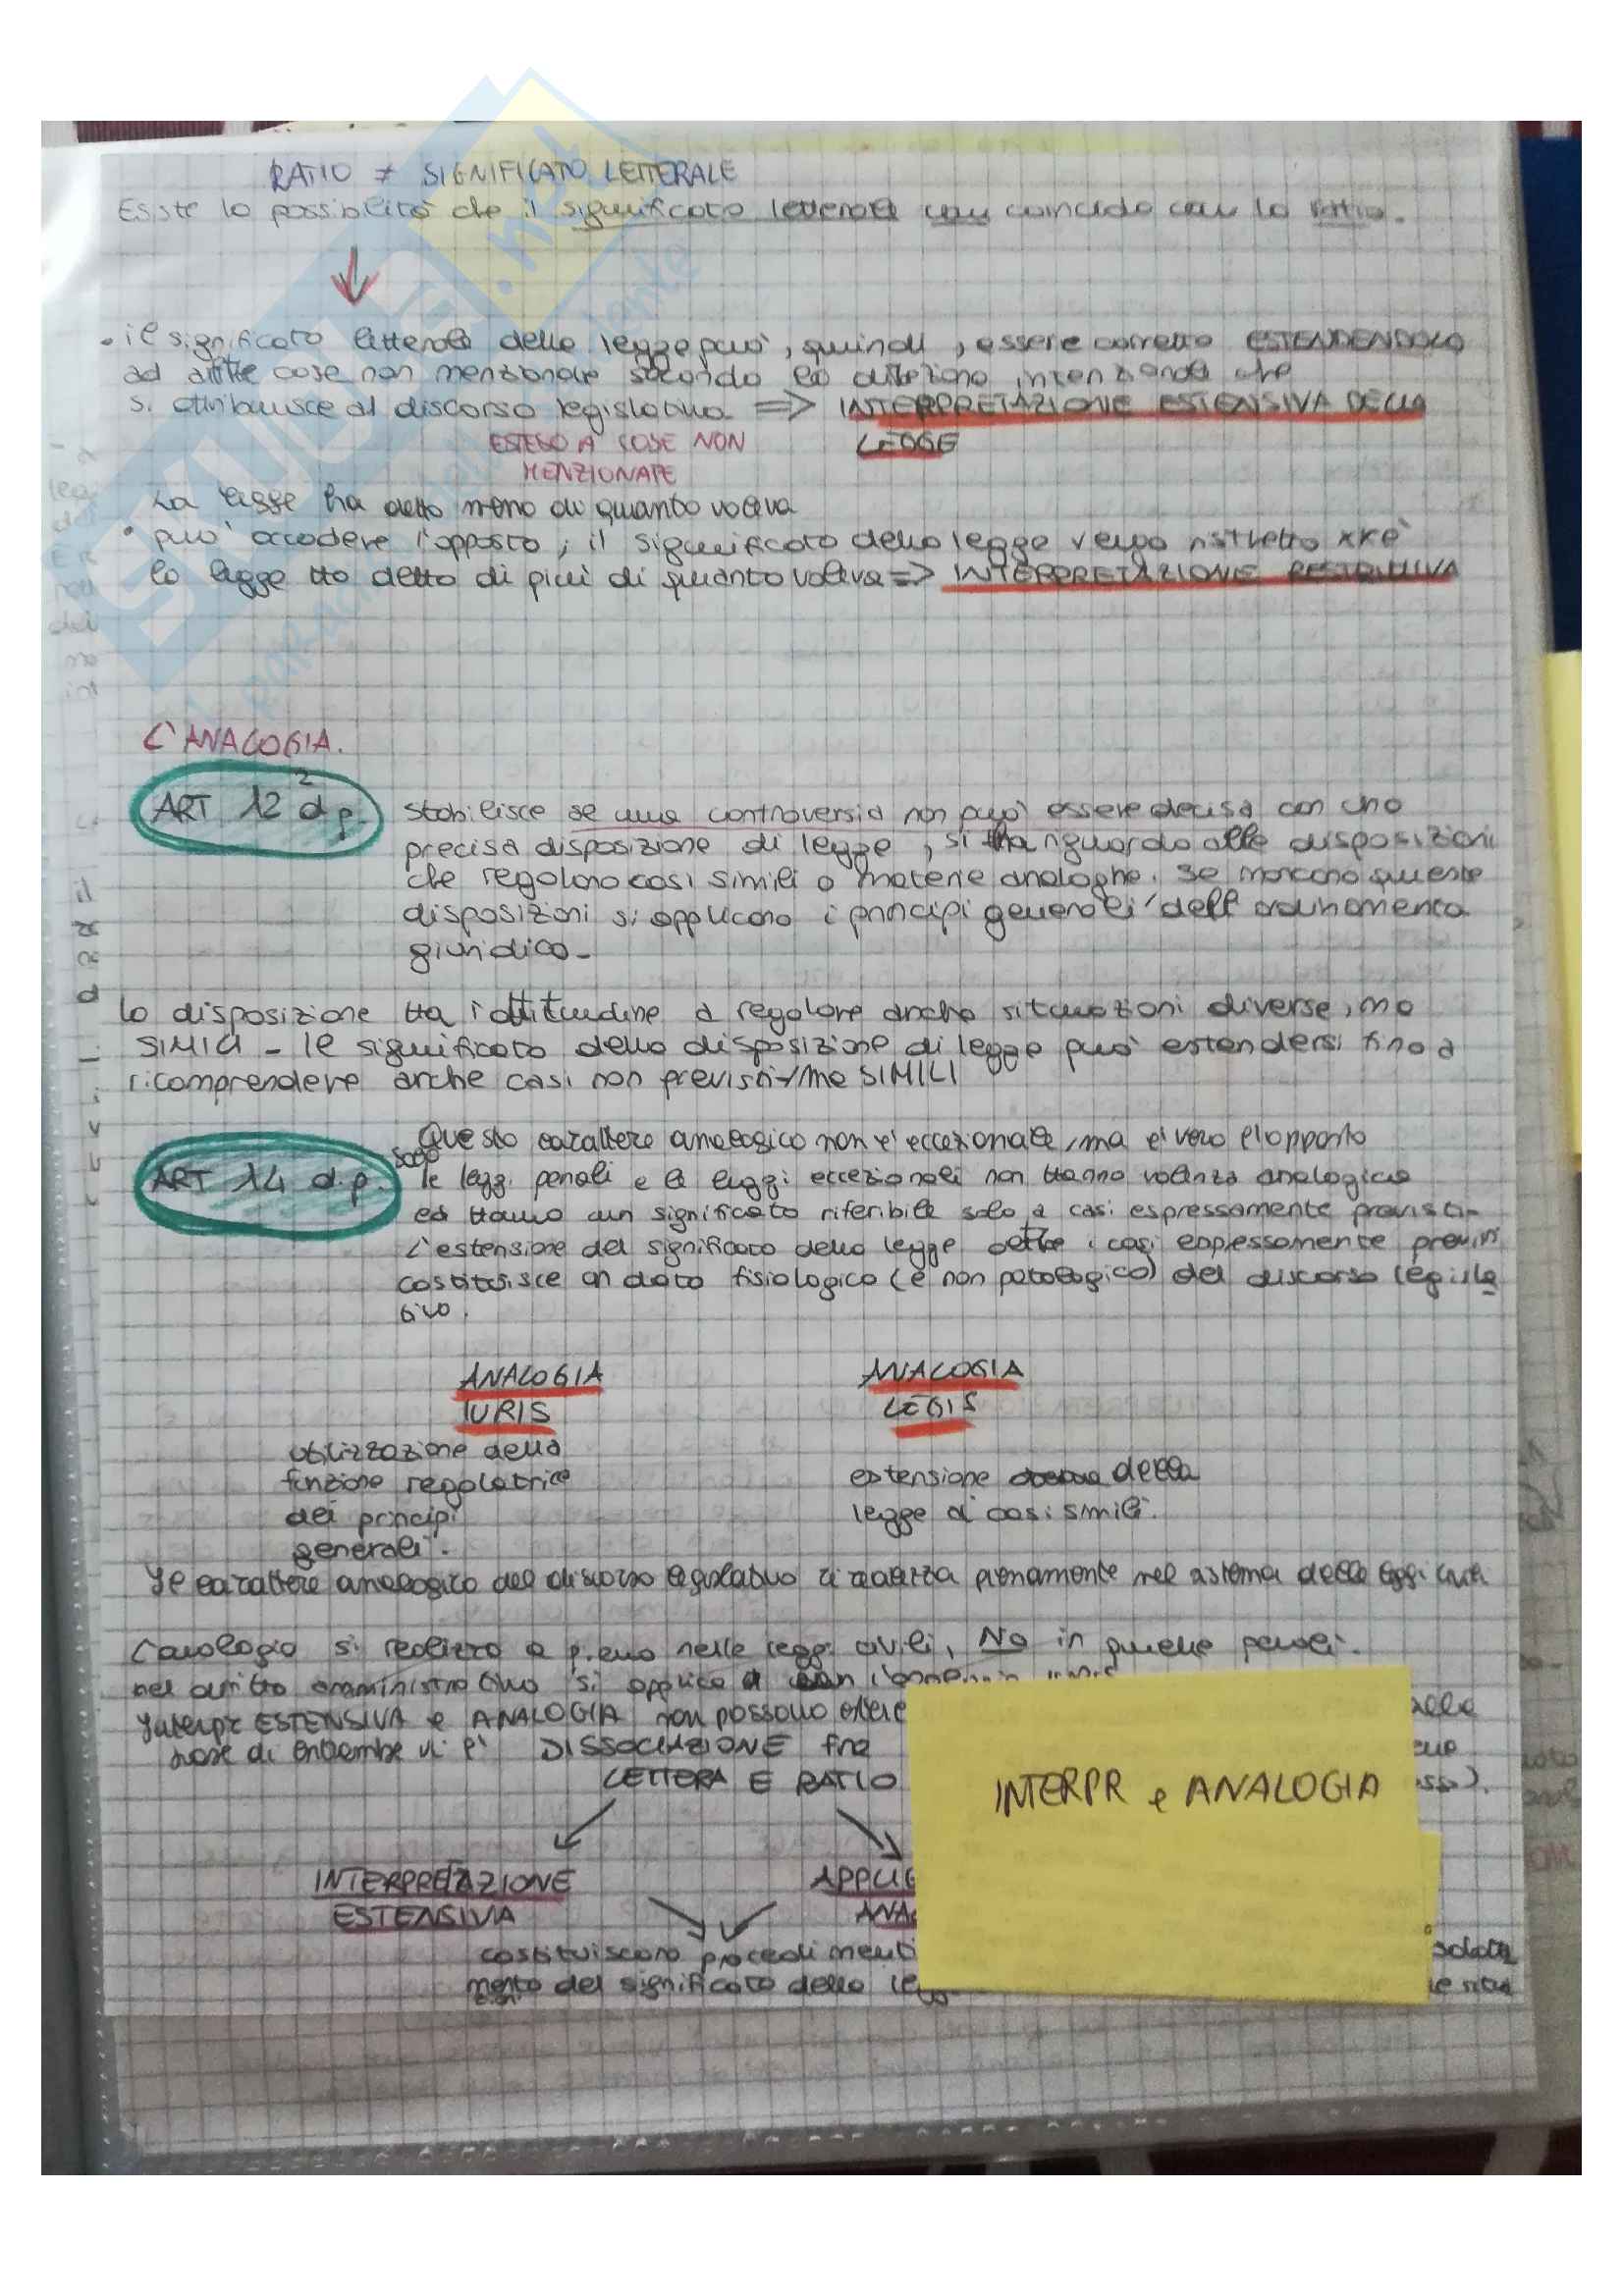 RATIO ≠ SIGNIFICATO LETTERALE
Esiste la possibilità che il significato letterale non coincida con la ratio.
• il significato letterale della legge può, quindi, essere corretto ESTENDENDOLO
ad altre cose non menzionate secondo la direzione intenzionale che
si attribuisce al discorso legislativo => INTERPRETAZIONE ESTENSIVA DELLA
LEGGE
ESTESO A COSE NON
MENZIONATE
La legge ha detto meno di quanto voleva
• può accadere l'opposto, il significato della legge venga ristretto xkè
la legge ha detto di più di quanto voleva => INTERPRETAZIONE RESTRITTIVA
L'ANALOGIA.
ART 12² d.p.
Stabilisce se una controversia non può essere decisa con una
precisa disposizione di legge, si ha riguardo alle disposizioni
che regolano casi simili o materie analoghe. Se mancano queste
disposizioni si applicano i principi generali dell'ordinamento
giuridico.
la disposizione ha l'attitudine a regolare anche situazioni diverse, ma
SIMILI - le significato della disposizione di legge può estendersi fino a
ricomprendere anche casi non previsti, ma SIMILI
ART 14 d.p.
Questo carattere analogico non e' eccezionale, ma e' vero l'opposto
solo le leggi penali e le leggi eccezionali non hanno valenza analogica
ed hanno un significato riferibile solo a casi espressamente previsti-
L'estensione del significato della legge oltre i casi espressamente previsti
costituisce un dato fisiologico (e non patologico) del discorso legisla
tivo.
ANALOGIA
IURIS
utilizzazione della
funzione regolatrice
dei principi
generali.
ANALOGIA
LEGIS
estensione della
legge a casi simili.
Il carattere analogico del discorso legislativo si realizza pienamente nel sistema delle leggi civili
L'analogia si realizza a pieno nelle leggi civili, No in quelle penali.
nel diritto amministrativo si applica
Interpr ESTENSIVA e ANALOGIA non possono essere
base di entrambe vi è DISSOCIAZIONE fra
LETTERA E RATIO
INTERPR e ANALOGIA
INTERPRETAZIONE
ESTENSIVA
costituiscono procedimenti
mento del significato della